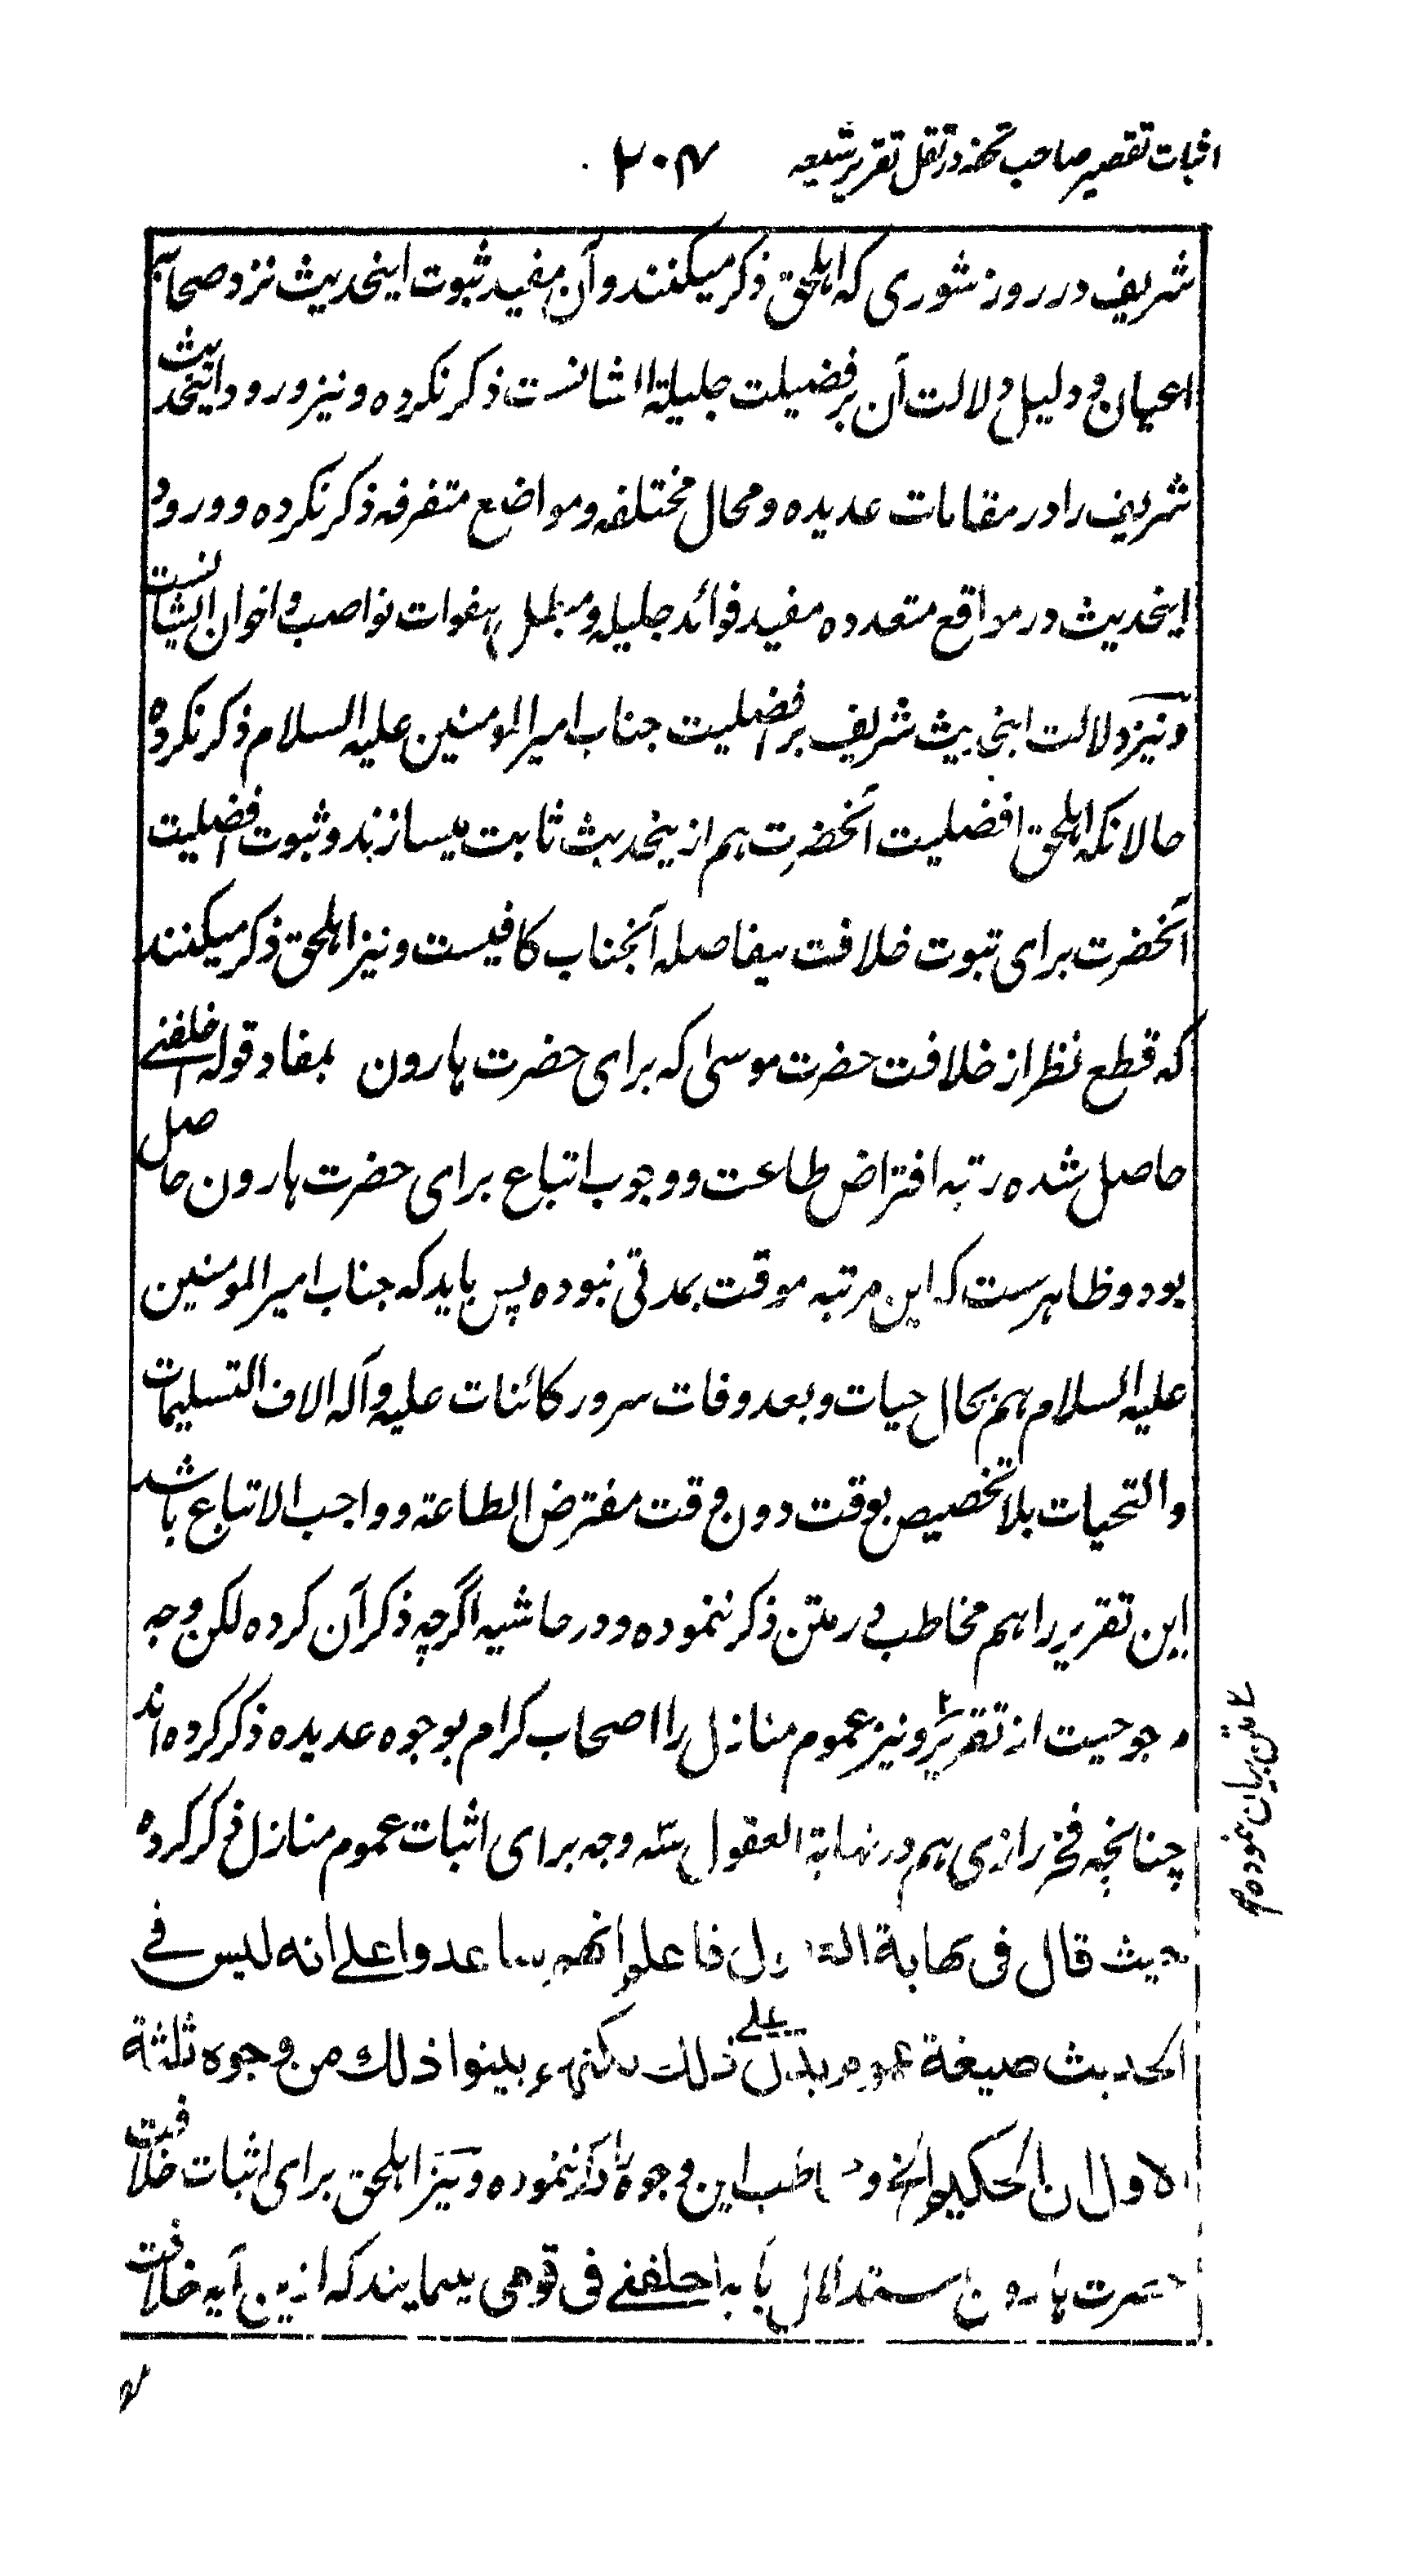 اثبات تقصیر صاحب تحفه در نقل تقریر شیعه ۲۰۴
شریف در روز شوری که اهلحق ذکر میکنند و آن مفید ثبوت اینحدیث نزد صحابه
اعیان و دلیل دلالت آن بر فضیلت جلیلة الشانست ذکر نکرده و نیز ورود اینحدیث
شریف را در مقامات عدیده و محال مختلفه و مواضع متفرقه ذکر نکرده و ورود
اینحدیث در مواقع متعدده مفید فوائد جلیله و مبطل هفوات نواصب و اخوان ایشانست
و نیز دلالت اینحدیث شریف بر افضلیت جناب امیر المومنین علیه السلام ذکر نکرده
حالانکه اهلحق افضلیت آنحضرت هم ازینحدیث ثابت میسازند و ثبوت افضلیت
آنحضرت برای ثبوت خلافت بیفاصله آنجناب کافیست و نیز اهلحق ذکر میکنند
که قطع نظر از خلافت حضرت موسی که برای حضرت هارون بمفاد قوله اخلفنے
حاصل شده رتبه افتراض طاعت و وجوب اتباع برای حضرت هارون حاصل
بود و ظاهرست که این مرتبه موقت بمدتی نبوده پس باید که جناب امیر المومنین
علیه السلام هم بحال حیات و بعد وفات سرور کائنات علیه و آله الاف التسلیمات
و التحیات بلا تخصیص بوقت دون وقت مفترض الطاعة و واجب الاتباع باشد
این تقریر را هم مخاطب در متن ذکر ننموده و در حاشیه اگرچه ذکر آن کرده لکن وجه
مرجوحیت از تقریر و نیز عموم منازل را اصحاب کرام بوجوه عدیده ذکر کرده اند
متن بیان نموده
چنانچه فخر رازی هم در نهایة العقول سه وجه برای اثبات عموم منازل ذکر کرده
حیث قال فی نهایة العقول فاعلم انهم ساعدوا علی انه لیس فے
الحدیث صیغة عموم یدل علے ذلك لکنهم بینوا ذلك من وجوه ثلثة
الاول ان الحکیم الخ و مخاطب این وجوه را ذکر ننموده و نیز اهلحق برای اثبات خلافت
حضرت هارون استدلال بآیه اخلفنے فی قومی مینمایند که ازین آیه خلافت